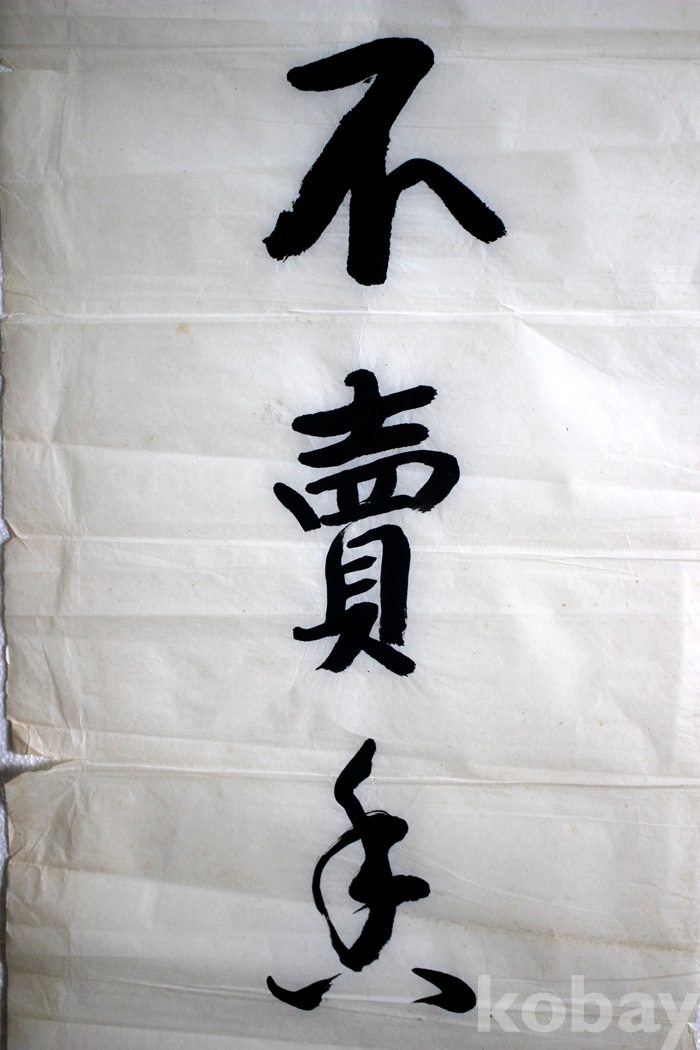 不
賣
香
kobay